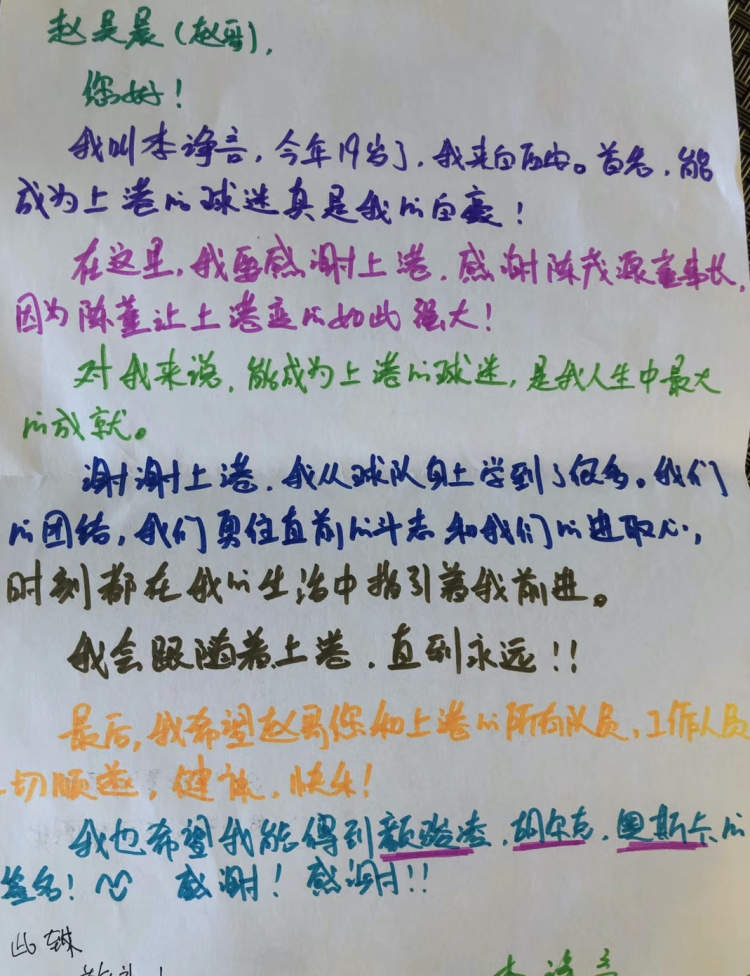 赵昊晨（赵哥），
您好！
我叫李诤言，今年19岁了，我来自西安。首先，能
成为上港的球迷真是我的自豪！
在这里，我要感谢上港，感谢陈戌源董事长，
因为陈董让上港变的如此强大！
对我来说，能成为上港的球迷，是我人生中最大
的成就。
谢谢上港，我从球队身上学到了很多。我们
的团结，我们勇往直前的斗志和我们的进取心，
时刻都在我的生活中指引着我前进。
我会跟随着上港，直到永远！！
最后，我希望赵哥您和上港的所有队员，工作人员
一切顺遂，健康，快乐！
我也希望我能得到颜骏凌，胡尔克，奥斯卡的
签名！感谢！感谢！！
此致
敬礼！
李诤言